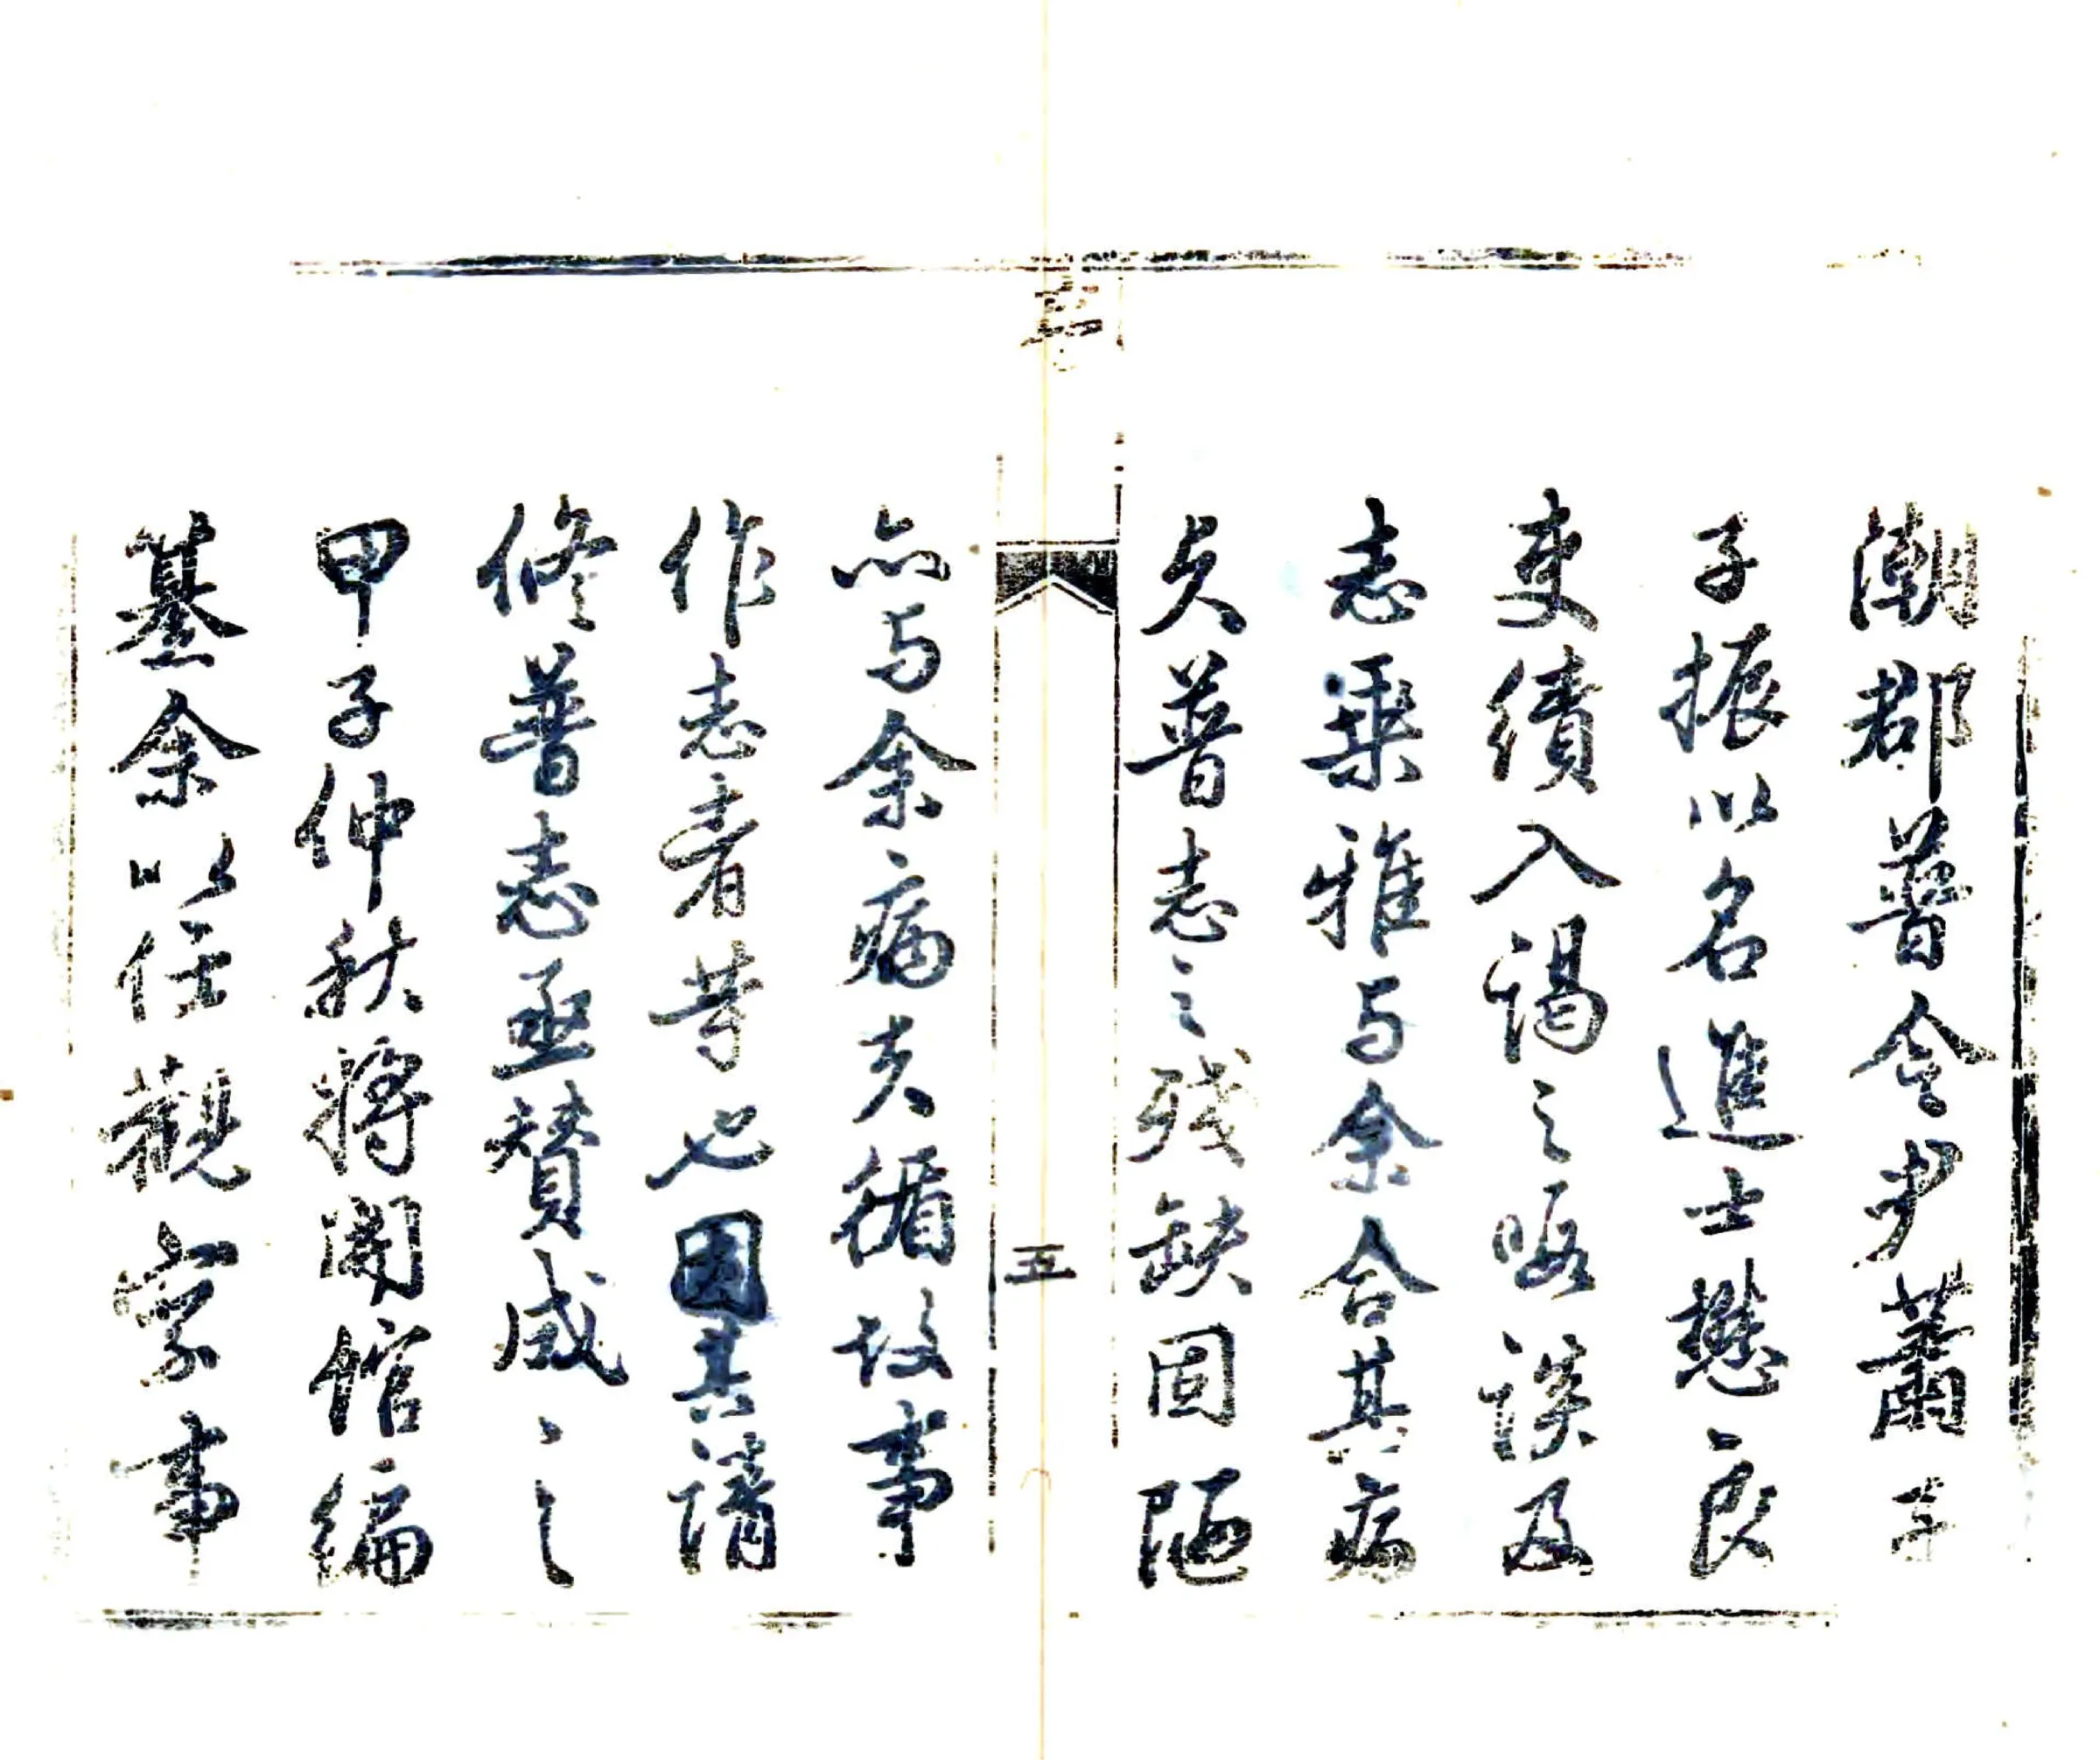 潮郡普令尹蕭子
子振以名進士懋良
吏績入謁之暇談及
志乘雅与余合其病
夫普志之殘缺固陋
五
亦与余病夫循故事
作志者等也因其請
修普志亟贊成之
甲子仲秋将開館編
纂余以任觀察事